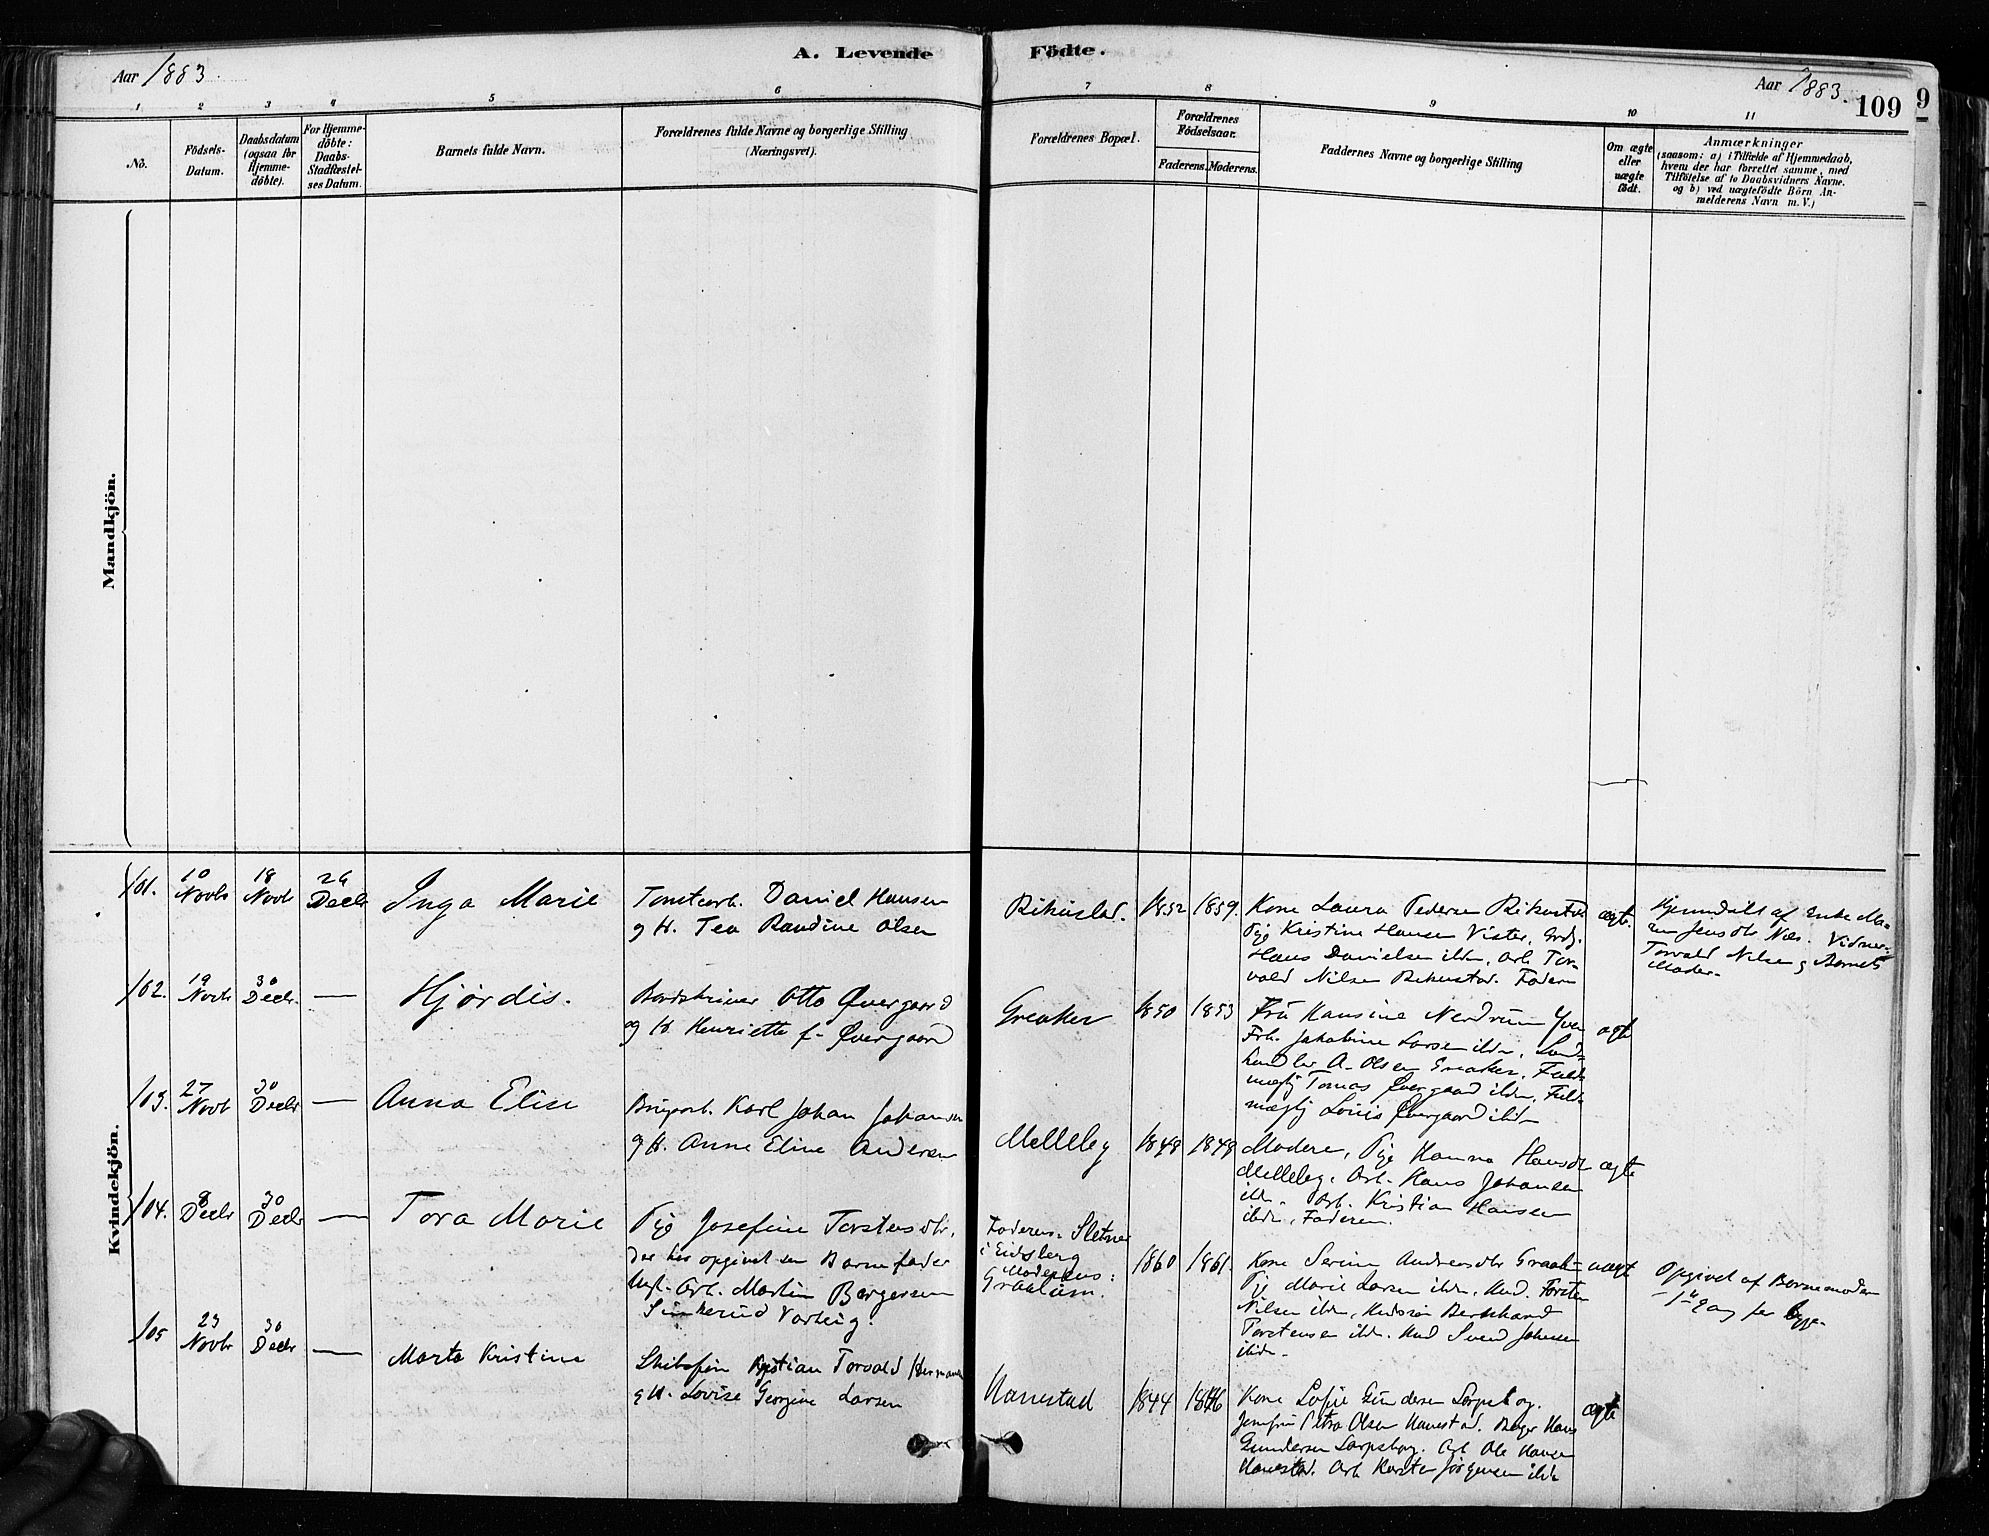 A. Levende Födte.
Aar 1883.
Aar 1883.
109
9
1 2 3 4 5 6 7 8 9 10 11
No.
Födsels-Datum.
Daabsdatum (ogsaa for Hjemme-döbte).
For Hjemme-döbte: Daabs-Stadfæstel-ses Datum.
Barnets fulde Navn.
Forældrenes fulde Navne og borgerlige Stilling
(Næringsvei).
Forældrenes Bopæl.
Forældrenes Födselsaar.
Faderens. Moderens.
Faddernes Navne og borgerlige Stilling
Om ægte eller uægte födt.
Anmærkninger
(saasom: a) i Tilfælde af Hjemmedaab,
hvem der har forrettet samme, med
Tilföielse af to Daabsvidners Navne.
og b) ved uægtefödte Börn An-
melderens Navn m. V.)
Mandkjön.
Kvindekjön.
101. 10 Novbr 18 Novbr 26 Decbr Inga Marie
Tomtearb. Daniel Hansen
og H. Tea Randine Olsen
Rikustad. 1852 1859.
Kone Laura Pedersen Rikustad
Pige Kristine Hansen Vister,
Hans Danielsen ibdn, Arb. Tor-
vald Nilsen Rikustad. Faderen
ægte.
Hjemmedøbt af Enke Ma-
ren Jensdtr Næs. Vidner:
Torvald Nilsen og Barnets
Moder.
102. 19 Novbr 30 Decbr. — Hjørdis.
Otto Øvergaard
og H. Henriette f. Øvergaard
Greaker 1850 1853
Fru Hansine Nerdrum
Frk. Jakobine Larsen ibdn, Land-
handler A. Olsen Greaker, Fuld-
mægtig Tomas Øvergaard ibdn, Fuld-
mægtig Louis Øvergaard ibdn
ægte
103. 27 Novbr 30 Decbr — Anna Elise
Brugsarb. Karl Johan Johansen
og H. Anne Eline Andersen
Melleby 1848 1849
Moderen, Pige Hanna Hansdtr
Melleby, Arb. Hans Johansen
ibdn. Arb. Kristian Hansen
ibdn, Faderen.
ægte
104. 8 Decbr 30 Decbr — Tora Marie
Pige Josefine Torstensdtr,
der har opgivet som Barnefader
Ungk. Arb. Martin Bergersen
Varteig.
Faderens: Sletner
i Eidsberg
Moderens:
Graalum.
1860 1861.
Kone Serine Andreasdtr Graalum
Pige Marie Larsen ibdn, Torsten
Nilsen ibdn, Bernhard
Torstensen ibdn. Svend Johnsen
ibdn.
uægt
Opgivet af Barnemoderen
1ste Gang for begge.
105 23 Novbr 30 Decbr — Marta Kristine
Kristian Torvald Hermansen
og H. Lovise Georgine Larsen
Hanestad 1844 1846
Kone Sofie Gundersen Sarpsborg.
Jomfru Petra Olsen Hanestad. Bager Hans
Gundersen Sarpsborg. Arb Ole Hansen
Hanestad. Arb Karsten Jørgensen ibdn
ægte